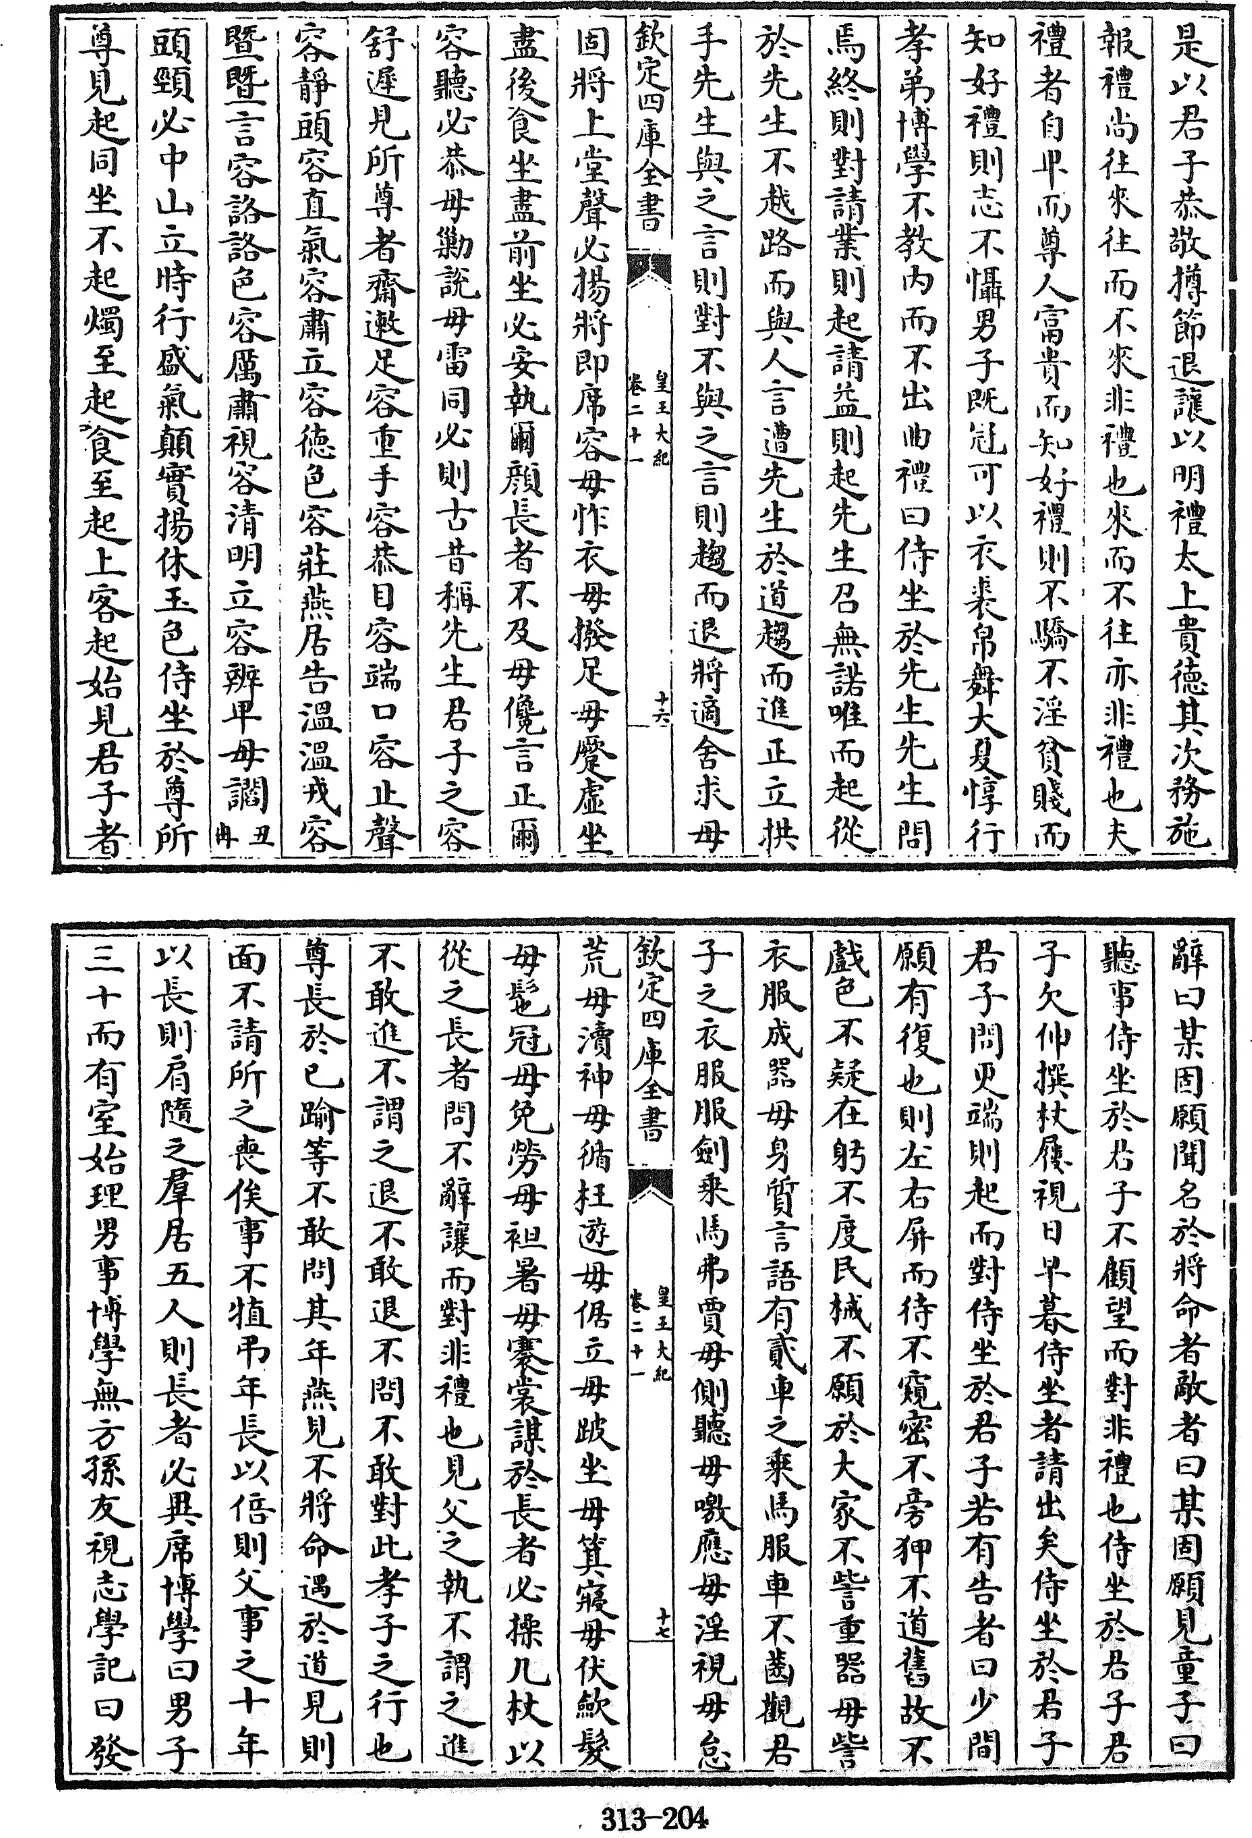 是以君子恭敬撙節退讓以明禮太上貴德其次務施
報禮尚往來往而不來非禮也來而不往亦非禮也夫
禮者自卑而尊人富貴而知好禮則不驕不淫貧賤而
知好禮則志不懾男子既冠可以衣裘帛舞大夏惇行
孝弟博學不教内而不出曲禮曰侍坐於先生先生問
焉終則對請業則起請益則起先生召無諾唯而起從
於先生不越路而與人言遭先生於道趨而進正立拱
手先生與之言則對不與之言則趨而退將適舍求毋
欽定四庫全書 皇王大紀 卷二十一 十六
固將上堂聲必揚將即席容毋怍衣毋撥足毋蹷虚坐
盡後食坐盡前坐必安執爾顔長者不及毋儳言正爾
容聽必恭毋勦說毋雷同必則古昔稱先生君子之容
舒遲見所尊者齊遬足容重手容恭目容端口容止聲
容靜頭容直氣容肅立容徳色容莊燕居告溫溫戎容
暨暨言容詻詻色容厲肅視容清明立容辨卑毋讇丑冉
頭頸必中山立時行盛氣顛實揚休玉色侍坐於尊所
尊見起同坐不起燭至起食至起上客起始見君子者
辭曰某固願聞名於將命者敵者曰某固願見童子曰
聽事侍坐於君子不顧望而對非禮也侍坐於君子君
子欠伸撰杖屨視日早暮侍坐者請出矣侍坐於君子
君子問更端則起而對侍坐於君子若有告者曰少間
願有復也則左右屏而待不窺密不旁狎不道舊故不
戲色不疑在躬不度民械不願於大家不訾重器毋訾
衣服成器毋身質言語有貳車之乘馬服車不齒觀君
子之衣服服劍乘馬弗賈毋側聽毋噭應毋淫視毋怠
欽定四庫全書 皇王大紀 卷二十一 十七
荒毋瀆神毋循枉遊毋倨立毋跛坐毋箕寢毋伏斂髮
毋髢冠毋免勞毋袒暑毋褰裳謀於長者必操几杖以
從之長者問不辭讓而對非禮也見父之執不謂之進
不敢進不謂之退不敢退不問不敢對此孝子之行也
尊長於已踰等不敢問其年燕見不將命遇於道見則
面不請所之喪俟事不犆弔年長以倍則父事之十年
以長則肩隨之羣居五人則長者必異席博學曰男子
三十而有室始理男事博學無方孫友視志學記曰發
313-204